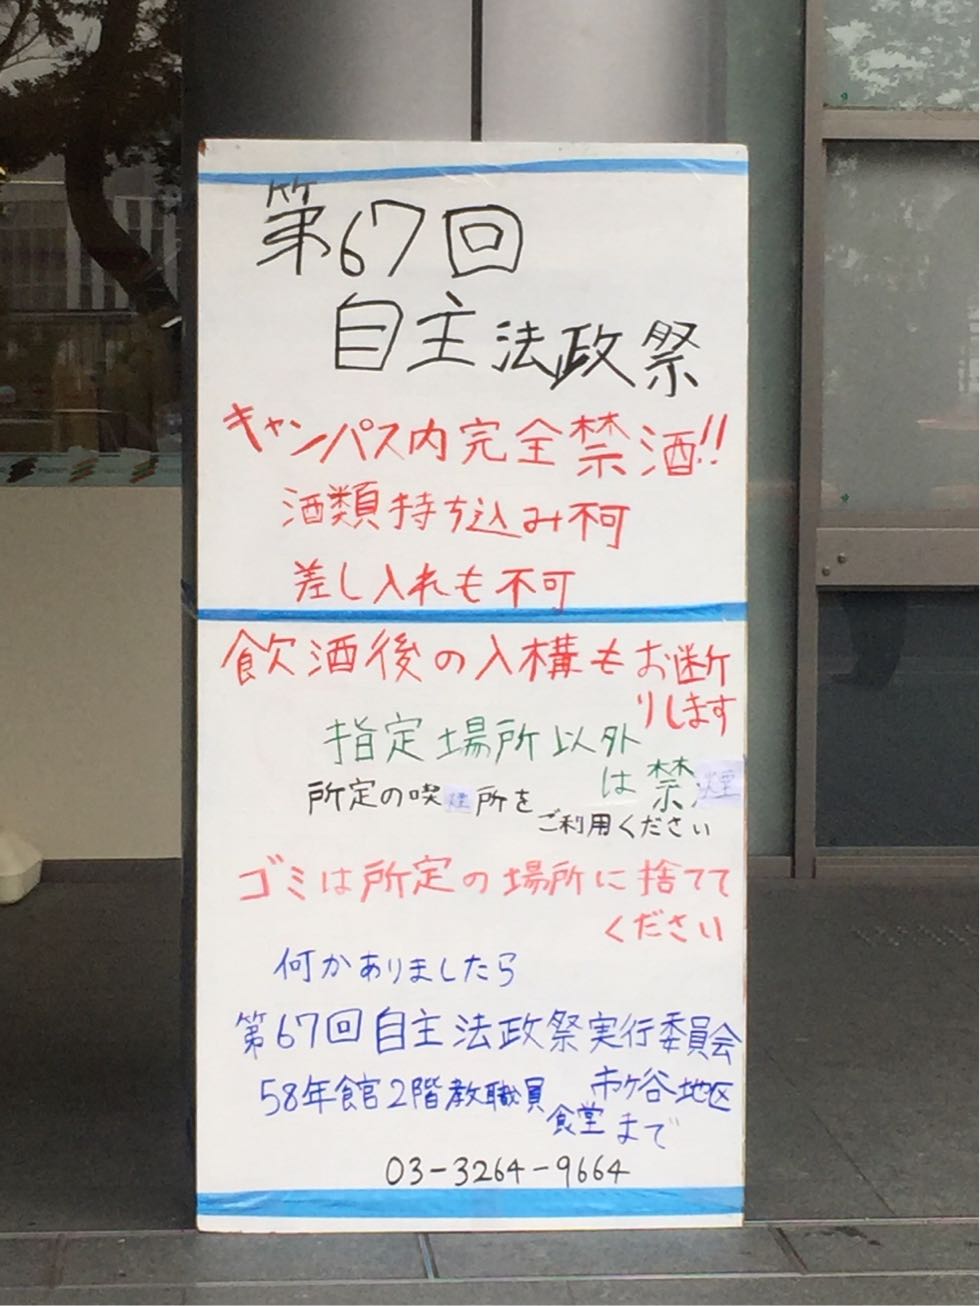 第67回
自主法政祭
キャンパス内完全禁酒!!
酒類持ち込み不可
差し入れも不可
飲酒後の入構もお断
りします
指定場所以外
は禁煙
所定の喫煙所を
ご利用ください
ゴミは所定の場所に捨てて
ください
何かありましたら
第67回自主法政祭実行委員会
市ヶ谷地区
58年館2階教職員
食堂まで
03-3264-9664